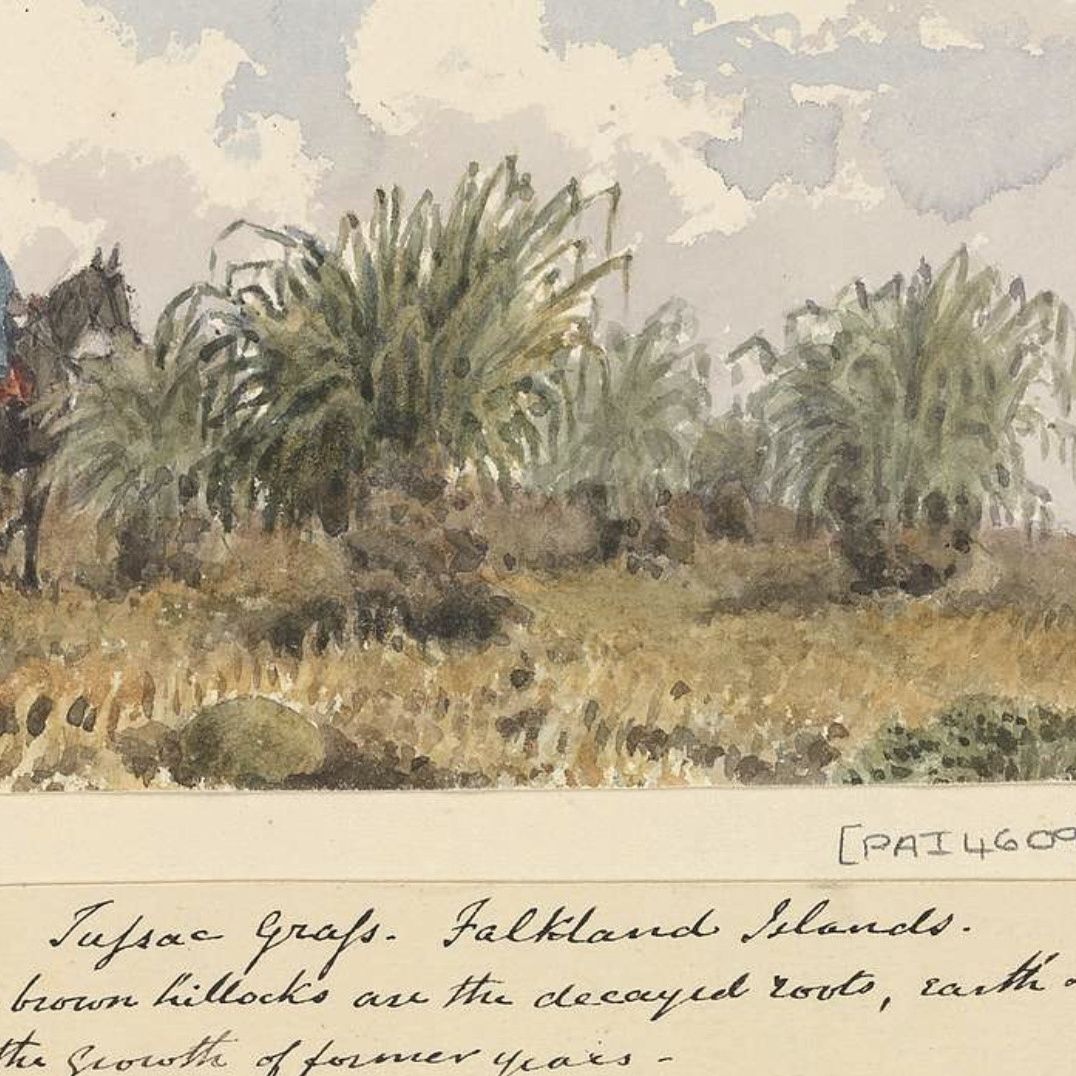 [PAI4609
Tussac Grass. Falkland Islands.
brown hillocks are the decayed roots, earth &
the growth of former years -